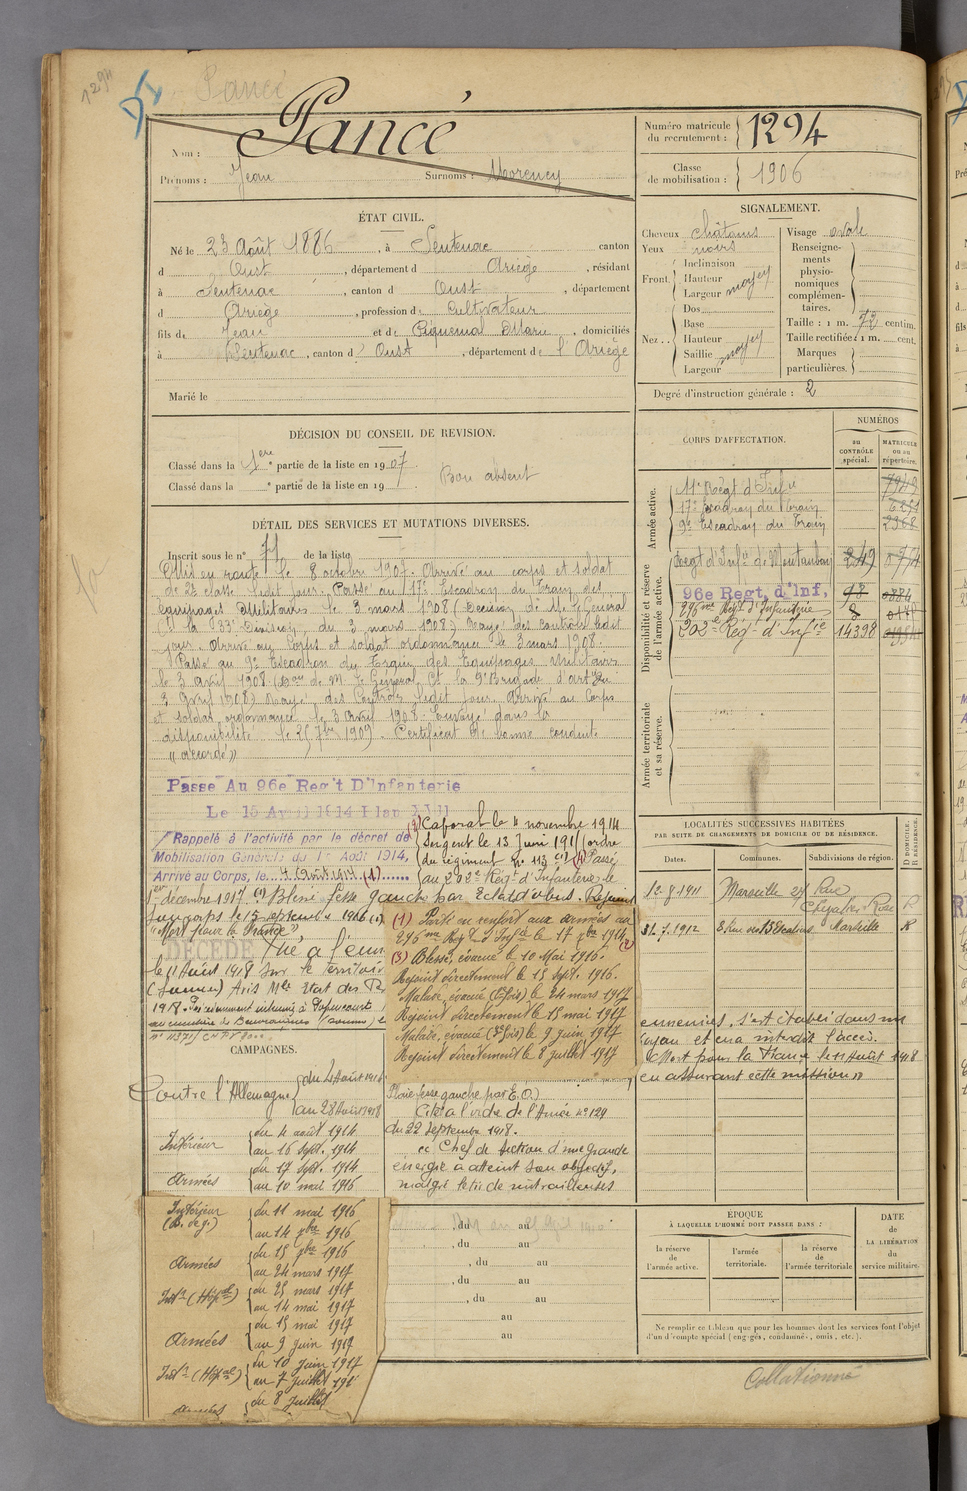 1294
Pancé
Nom : Pancé
Prénoms : Jean Surnoms :
Numéro matricule du recrutement : 1294
Classe de mobilisation : 1906
ÉTAT CIVIL.
Né le 23 Août 1886, à Sentenac canton
d Oust, département d Ariège, résidant
à Sentenac, canton d Oust, département
d Ariège, profession de Cultivateur
fils de Jean et de Piquemal Marie, domiciliés
à Sentenac, canton d Oust, département de l'Ariège
Marié le
SIGNALEMENT.
Cheveux châtains
Yeux noirs
Front. Inclinaison
Hauteur
Largeur moyen
Nez.. Dos
Base
Hauteur
Saillie moyen
Largeur
Visage ovale
Renseignements physionomiques complémentaires.
Taille : 1 m. 72 centim.
Taille rectifiée : 1 m. cent.
Marques particulières.
Degré d'instruction générale : 2
DÉCISION DU CONSEIL DE REVISION.
Classé dans la 1ère partie de la liste en 1907. Bon absent
Classé dans la partie de la liste en 19
DÉTAIL DES SERVICES ET MUTATIONS DIVERSES.
Inscrit sous le n° de la liste
Mis en route le 8 octobre 1907. Arrivé au corps et soldat
de 2e classe ledit jour. Passé au 17e Escadron du Train des
équipages Militaires le 3 mars 1908 (Décision de M. le Général
Ct la 33e Division, du 3 mars 1908.) Rayé des contrôles ledit
jour. Arrivé au Corps et soldat ordonnance le 3 mars 1908.
Passé au 9e Escadron du Train des Equipages Militaires
le 3 avril 1908 ( de M. le Général Ct la 9e Brigade d'Artie du
3 Avril 1908) Rayé des Contrôles ledit jour. Arrivé au Corps
et soldat ordonnance le 3 avril 1908. Envoyé dans la
disponibilité le 25 7bre 1909. Certificat de bonne conduite
"accordé"
Passé Au 96e Reg't D'Infanterie
Le 15 Avril 1914 Plan XVII
Rappelé à l'activité par le décret de
Mobilisation Générale du 1er Août 1914,
Arrivé au Corps, le 4 Août 1914 (1)
(2) Caporal le 4 novembre 1914
Sergent le 13 Juin 191 (ordre
du régiment N° 113) Passé
au 202e Régt d'Infanterie le
1er décembre 1917. Blessé fesse gauche par Eclat d'obus. Rejoint
son corps le 15 septembre 1916
"Mort pour la France"
DÉCÉDÉ Tué à l'enn
le 11 Août 1918 sur le territoir
(Somme) Avis Mle Etat des
1918.
(1) Parti en renfort aux armées au
296me Régt d'Infie le 17 7bre 1914. (2)
(3) Blessé, évacué le 10 Mai 1916.
Rejoint directement le 15 Sept. 1916.
Malade, évacué (2e fois) le 24 mars 1917
Rejoint directement le 15 mai 1917
Malade, évacué (3e fois) le 9 juin 1917
Rejoint directement le 8 juillet 1917
CORPS D'AFFECTATION.
NUMÉROS
au CONTRÔLE spécial.
MATRICULE ou au répertoire.
Armée active.
17e Escadron du Train
9e Escadron du Train
Disponibilité et réserve de l'armée active.
Regt d'Infie de Montauban 249
96e Regt, d'Inf,
296me Régt d'Infanterie
202e Régt d'Infie 14398
Armée territoriale et sa réserve.
LOCALITÉS SUCCESSIVES HABITÉES
PAR SUITE DE CHANGEMENTS DE DOMICILE OU DE RÉSIDENCE.
Dates. Communes. Subdivisions de région. D DOMICILE. R RÉSIDENCE.
Marseille Rue Chevalier Roze R
31.7.1912 8 Rue des 13 Escaliers Marseille R
ennemies, s'est établi dans un
et en a interdit l'accès.
Mort pour la France le 11 Août 1918
en assurant cette mission"
CAMPAGNES.
Contre l'Allemagne du 4 Août 1914
au 28 Août 1918
Intérieur du 4 août 1914
au 16 Sept. 1914
Armées du 17 Sept. 1914
au 10 mai 1916
Intérieur (B. de g.) du 11 mai 1916
au 14 7bre 1916
Armées du 15 7bre 1916
au 24 mars 1917
Intr (Hôpal) du 25 mars 1917
au 14 mai 1917
Armées du 15 mai 1917
au 9 juin 1917
Intr (Hôpal) du 10 juin 1917
au 7 juillet 191
Armées du 8 juillet
Plaie fesse gauche par E.O.)
Cité à l'ordre de l'Armée n° 129
du 22 Septembre 1918.
"Chef de section d'une grande
énergie a atteint son objectif,
malgré le tir de mitrailleuses
, du au
, du au
, du au
, du au
, du au
au
au
ÉPOQUE
À LAQUELLE L'HOMME DOIT PASSER DANS :
la réserve de l'armée active.
l'armée territoriale.
la réserve de l'armée territoriale
DATE de LA LIBÉRATION du service militaire.
Ne remplir ce tableau que pour les hommes dont les services font l'objet
d'un décompte spécial (engagés, condamnés, omis, etc.).
Collationné